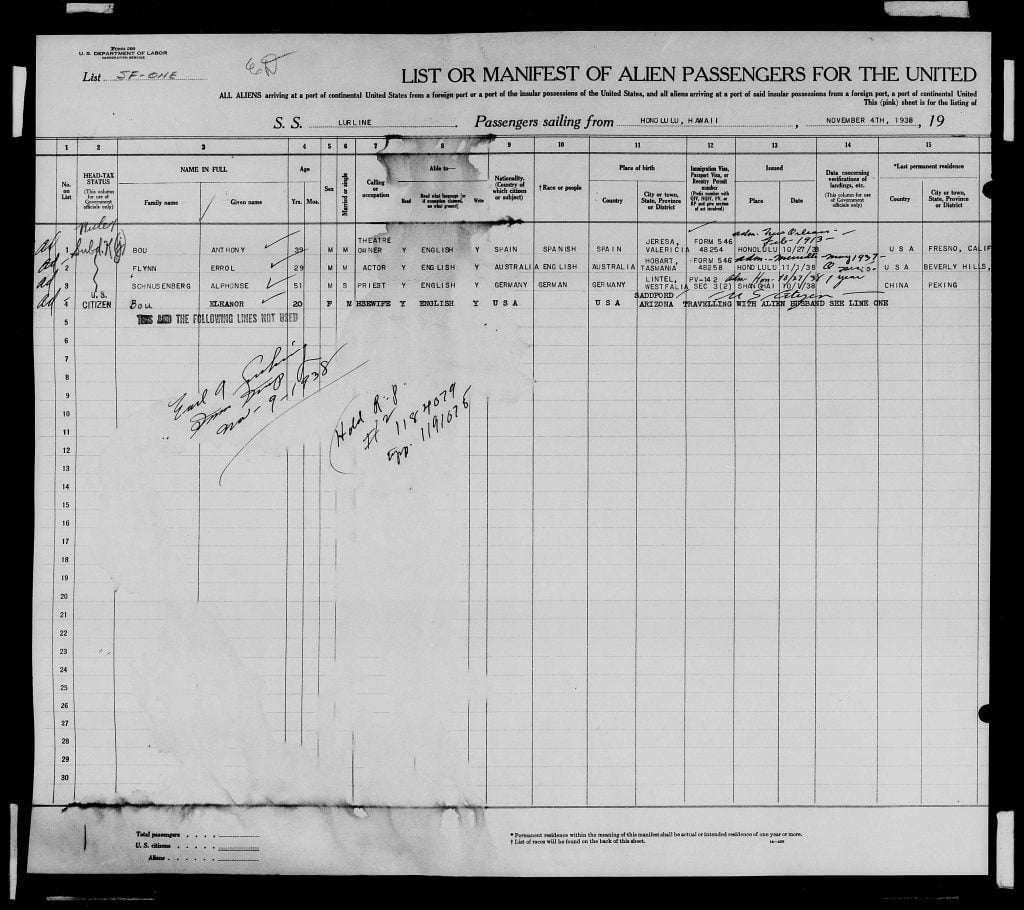 Form 500
U. S. DEPARTMENT OF LABOR
IMMIGRATION SERVICE
List SF-ONE
LIST OR MANIFEST OF ALIEN PASSENGERS FOR THE UNITED
ALL ALIENS arriving at a port of continental United States from a foreign port or a port of the insular possessions of the United States, and all aliens arriving at a port of said insular possessions from a foreign port, a port of continental United
This (pink) sheet is for the listing of
S. S. LURLINE Passengers sailing from HONOLULU, HAWAII , NOVEMBER 4TH, 1938 , 19
1 2 3 4 5 6 7 8 9 10 11 12 13 14 15
No. on List HEAD-TAX STATUS (This column for use of Government officials only) NAME IN FULL Family name Given name Age Yrs. Mos. Sex Married or single Calling or occupation Able to— Read Read what language [or if exemption claimed, on what ground] Write Nationality. (Country of which citizen or subject) † Race or people Place of birth Country City or town, State, Province or District Immigration Visa, Passport Visa, or Reentry Permit number Issued Place Date Data concerning verifications of landings, etc. (This column for use of Government officials only) *Last permanent residence Country City or town, State, Province or District
adm. New Orleans
Feb - 1913 -
1 BOU ANTHONY 39 M M THEATRE OWNER Y ENGLISH Y SPAIN SPANISH SPAIN JERESA, VALERICIA FORM 546 48254 HONOLULU 10/27/38 U S A FRESNO, CALIF
2 FLYNN ERROL 29 M M ACTOR Y ENGLISH Y AUSTRALIA ENGLISH AUSTRALIA HOBART, TASMANIA FORM 546 48258 HONOLULU 11/3/38 U S A BEVERLY HILLS,
3 SCHNUSENBERG ALPHONSE 51 M S PRIEST Y ENGLISH Y GERMANY GERMAN GERMANY LINTEL, WESTFALIA PV-142 SEC 3(2) SHANGHAI 10/1/38 Adm. Hon. 10/27/38 1 year CHINA PEKING
4 U. S. CITIZEN Bou ELEANOR 20 F M HSEWIFE Y ENGLISH Y U S A U S A SADDFORD ARIZONA U S Citizen TRAVELLING WITH ALIEN HUSBAND SEE LINE ONE
5 THIS AND THE FOLLOWING LINES NOT USED
6
7
8
9
10
11
12
13
14
15
16
17
18
19
20
21
22
23
24
25
26
27
28
29
30
Earl A
Nov - 9 - 1938
Hold R-P
1184079
Exp. 1191076
Total passengers
U. S. citizens
Aliens
* Permanent residence within the meaning of this manifest shall be actual or intended residence of one year or more.
† List of races will be found on the back of this sheet.